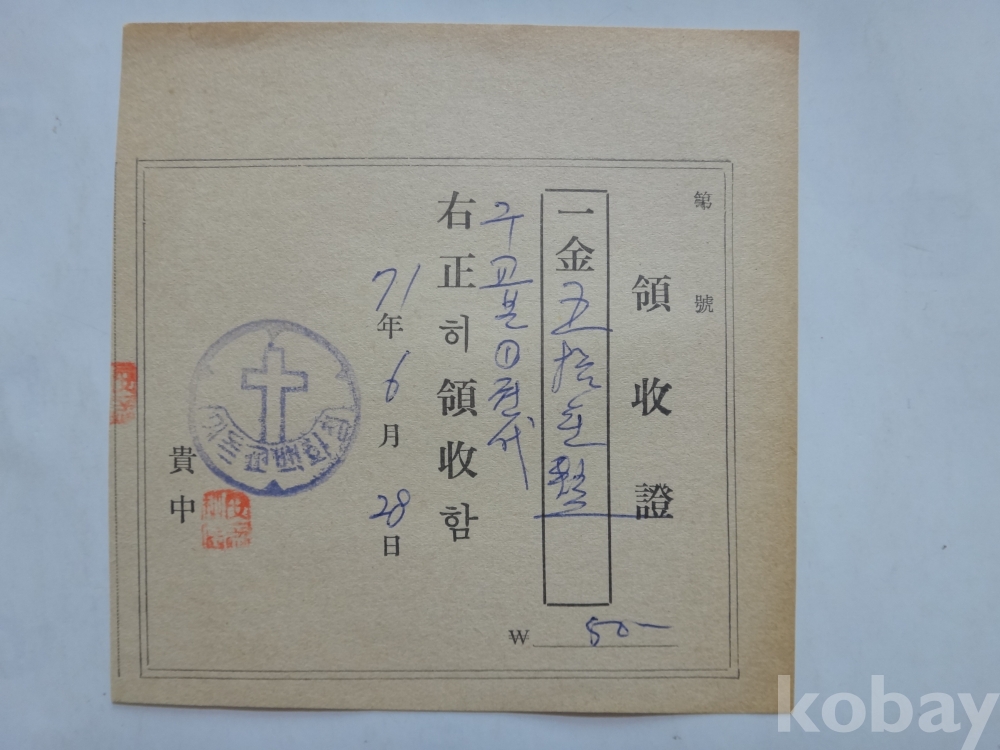 第 號
領收證
一金 五拾원整
우표분 ① 권代
右正히領收함
71年 6月 28日
貴中
₩ 50-
kobay